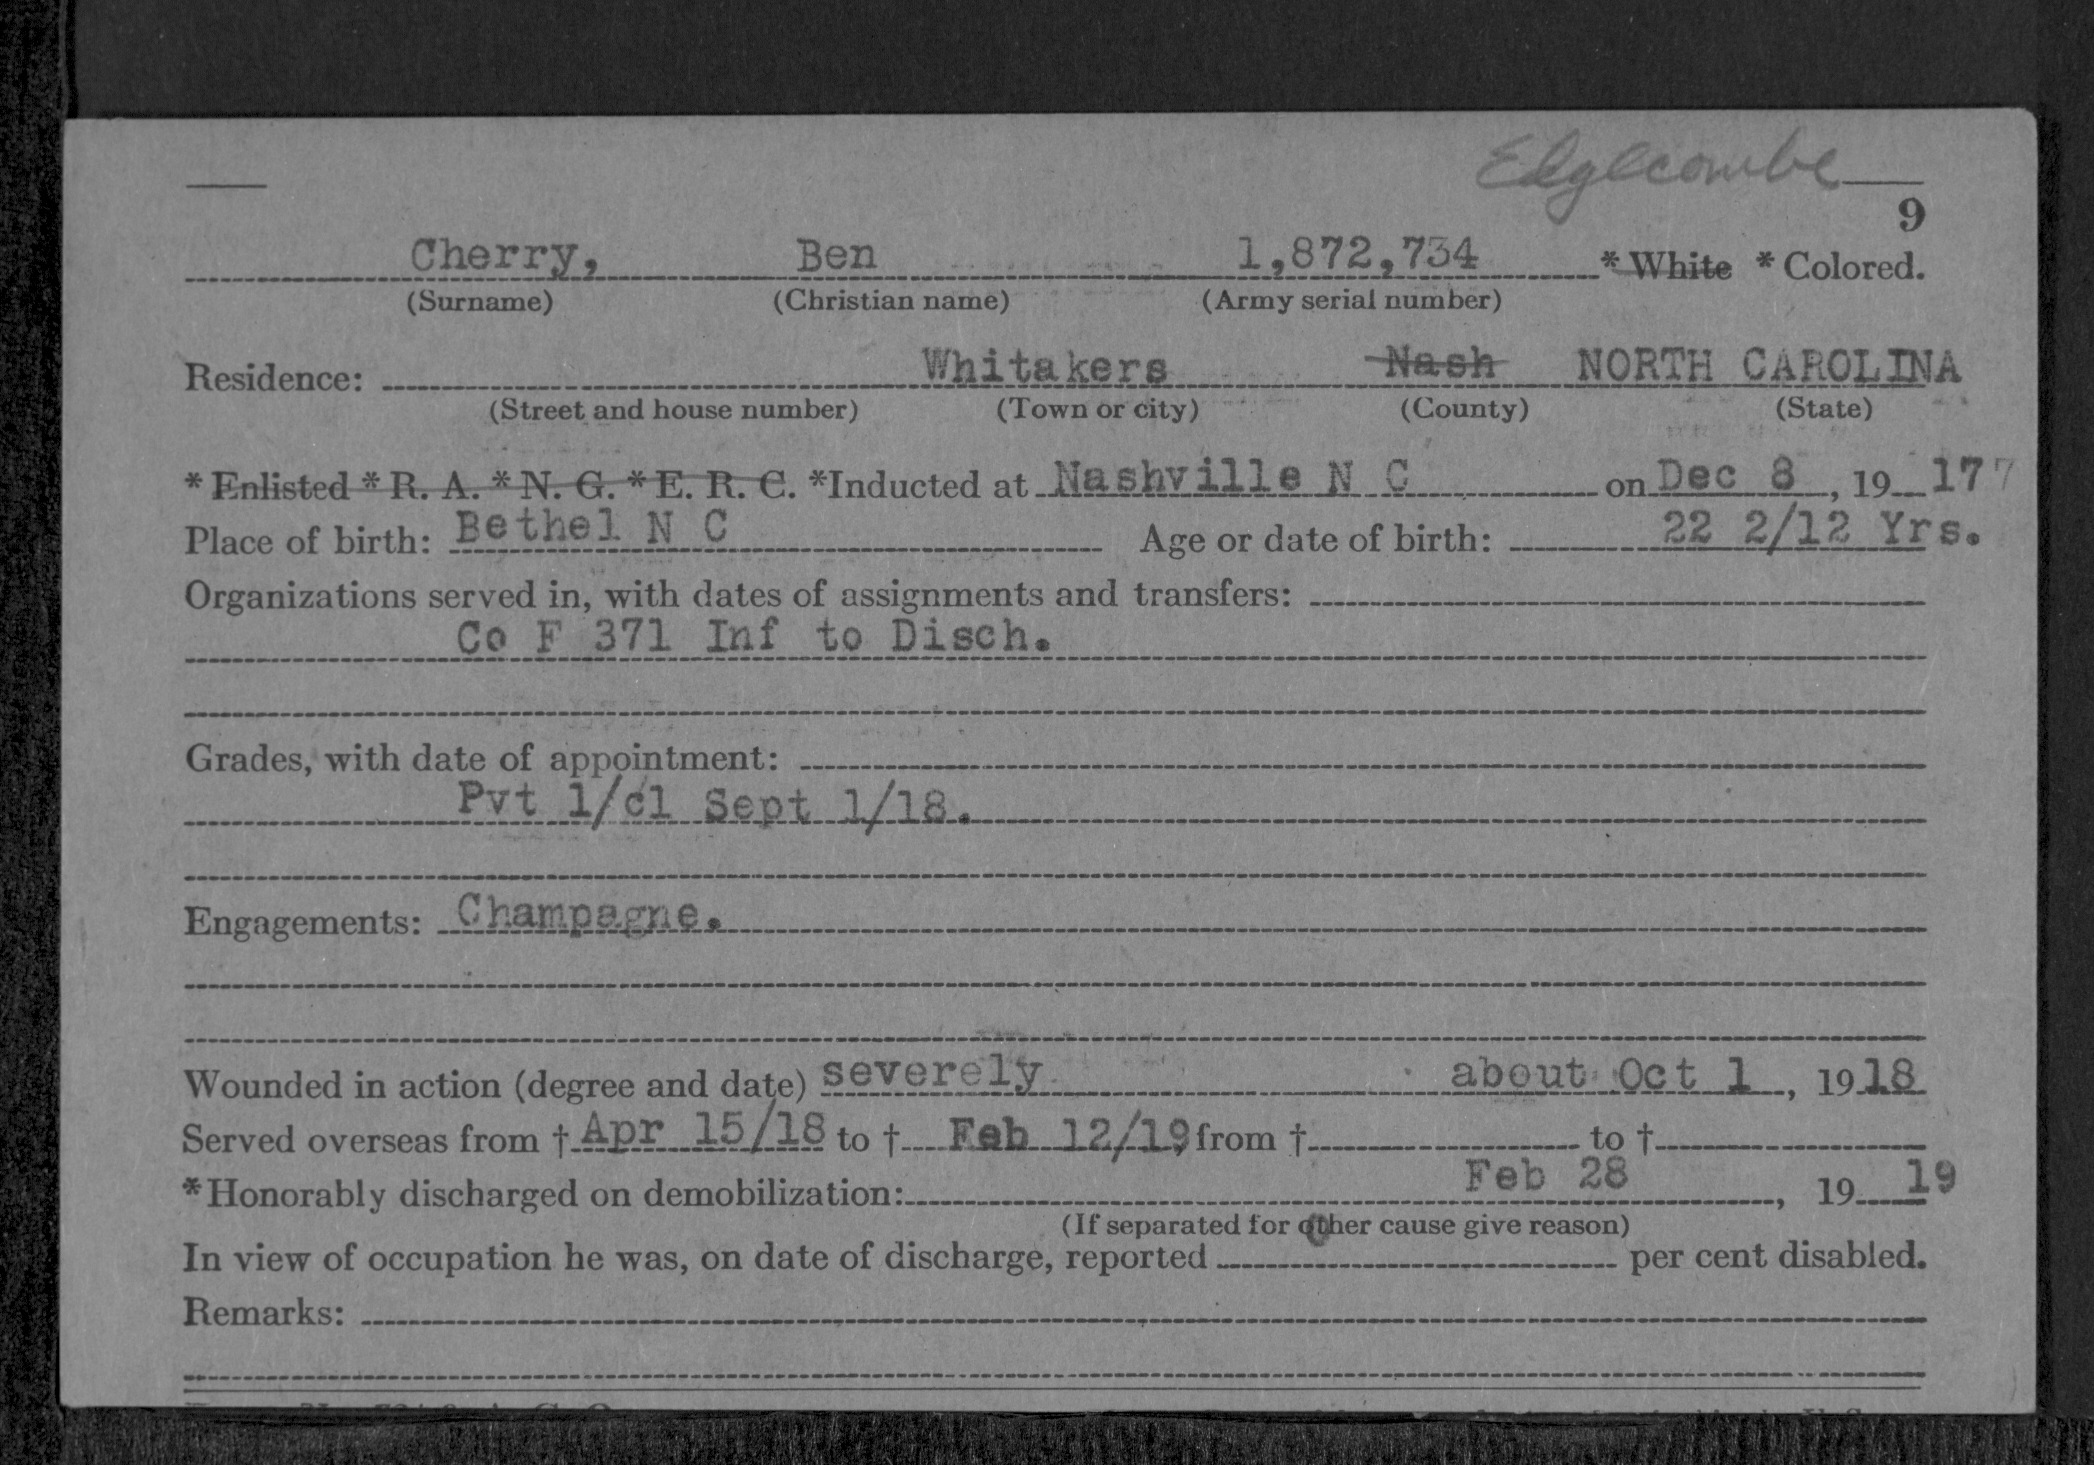 Edgecombe
9
Cherry, Ben 1,872,734 * White * Colored.
(Surname) (Christian name) (Army serial number)
Residence: Whitakers Nash NORTH CAROLINA
(Street and house number) (Town or city) (County) (State)
* Enlisted * R. A. * N. G. * E. R. C. *Inducted at Nashville N C on Dec 8, 19 17 7
Place of birth: Bethel N C Age or date of birth: 22 2/12 Yrs.
Organizations served in, with dates of assignments and transfers:
Co F 371 Inf to Disch.
Grades, with date of appointment:
Pvt 1/cl Sept 1/18.
Engagements: Champagne.
Wounded in action (degree and date) severely about Oct 1, 1918
Served overseas from † Apr 15/18 to † Feb 12/19, from † to †
*Honorably discharged on demobilization: Feb 28, 19 19
(If separated for other cause give reason)
In view of occupation he was, on date of discharge, reported per cent disabled.
Remarks: